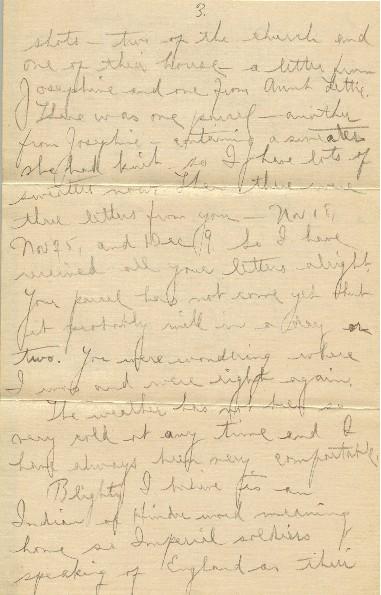 3.
shots – two of the church and
one of their house a letter from
Josephine and one from Aunt Lettie.
There was one parcel – another
from Josephine – containing a sweater
she had knit so I have lots of
sweaters now. Then there were
three letters from you – Nov 18,
Nov 25, and Dec 9 So I have
received all your letters alright.
Your parcel has not come yet but
it probably will in a day or
two. You were wondering where
I was and were right again.
The weather has not been so
very cold at any time and I
have always been very comfortable.
Blighty I believe is an
Indian or Hindu word meaning
home so Imperial soldiers
speaking of England as their